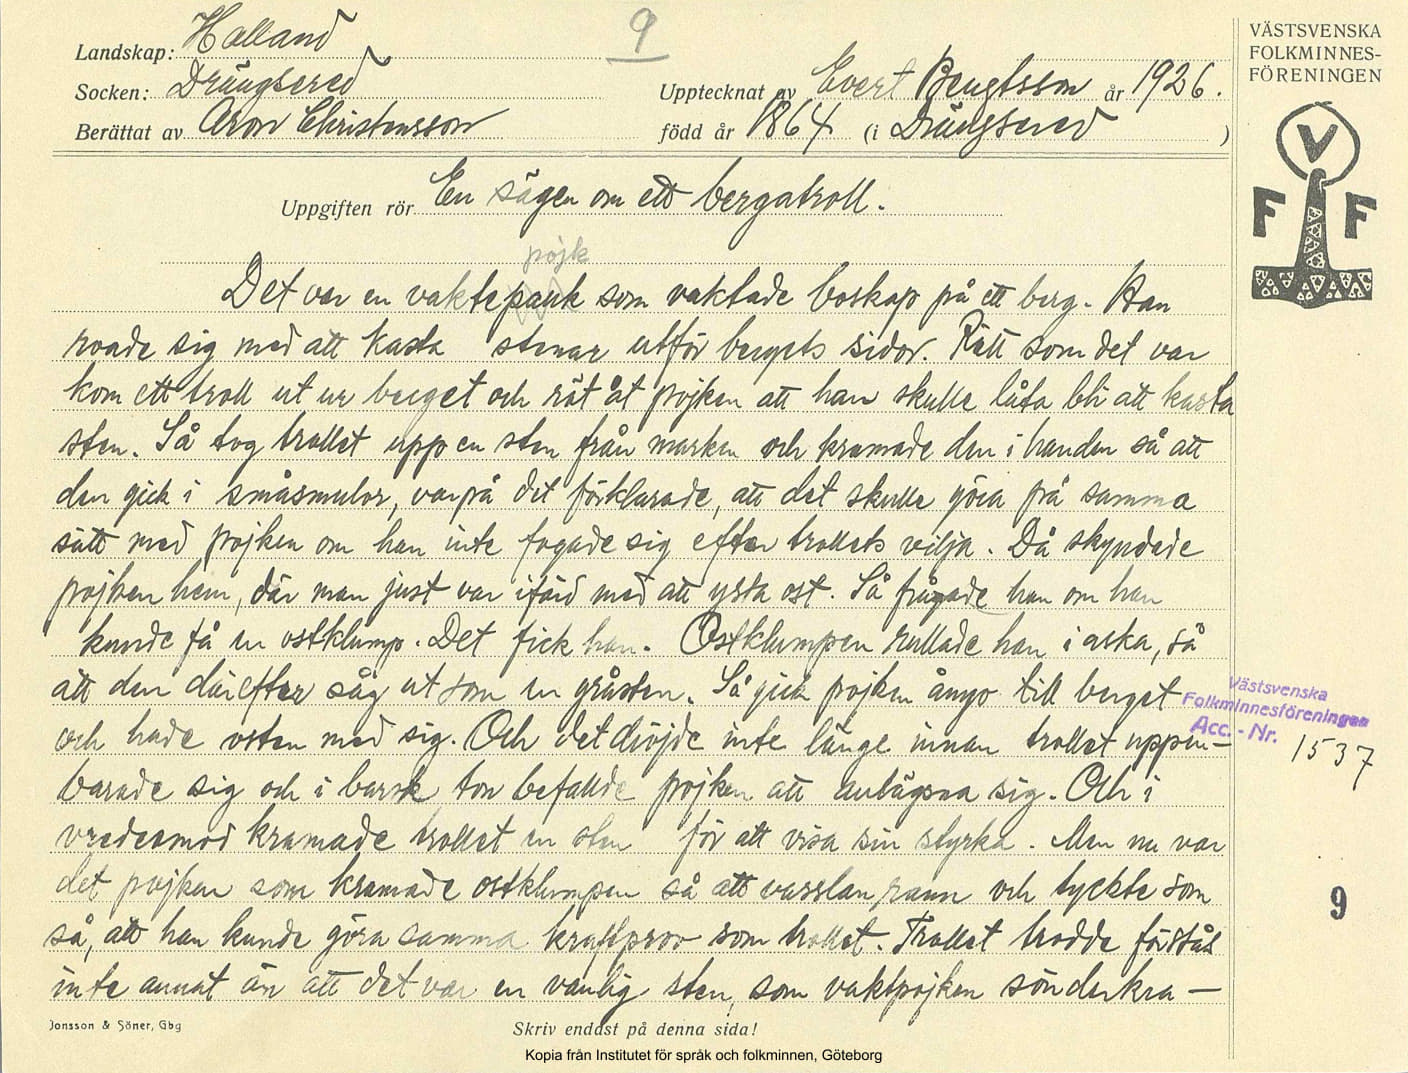 9
Landskap: Halland
Socken: Drängsered
Berättat av Aron Christensson
Upptecknat av Evert Bengtsson år 1926.
född år 1864 (i Drängsered )
VÄSTSVENSKA
FOLKMINNES-
FÖRENINGEN
V
F F
Uppgiften rör En sägen om ett bergatroll.
pojk
Det var en vaktepank som vaktade boskap på ett berg. Han
roade sig med att kasta stenar utför bergets sidor. Rätt som det var
kom ett troll ut ur berget och röt åt pojken att han skulle låta bli att kasta
sten. Så tog trollet upp en sten från marken och kramade den i handen så att
den gick i småsmulor, varpå det förklarade, att det skulle göra på samma
sätt med pojken om han inte fogade sig efter trollets vilja. Då skyndade
pojken hem, där man just var ifärd med att ysta ost. Så frågade han om han
kunde få en ostklump. Det fick han. Ostklumpen rullade han i aska, så
att den därefter såg ut som en gråsten. Så gick pojken ånyo till berget
och hade osten med sig. Och det dröjde inte länge innan trollet uppen-
barade sig och i barsk ton befallde pojken att avlägsna sig. Och i
vredesmod kramade trollet en sten för att visa sin styrka. Men nu var
det pojken som kramade ostklumpen så att vasslan rann och tyckte som
så, att han kunde göra samma kraftprov som trollet. Trollet trodde förstås
inte annat än att det var en vanlig sten, som vaktpojken sönderkra-
Västsvenska
Folkminnesföreningen
Acc.-Nr. 1537
9
Jonsson & Söner, Gbg
Skriv endast på denna sida!
Kopia från Institutet för språk och folkminnen, Göteborg